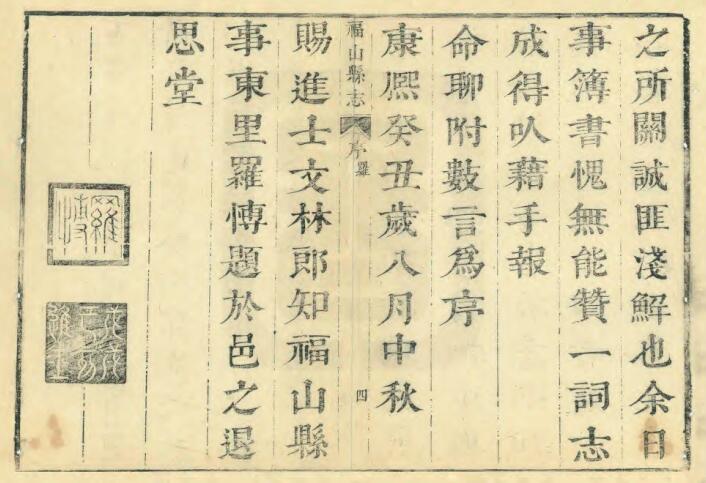 之所關誠匪淺觧也余日
事簿書愧無能贊一詞志
成得㕥藉手報
命聊附數言爲序
康熈癸丑歲八月中秋
福山縣志 序 羅 四
賜進士文林郎知福山縣
事東里羅博題於邑之退
思堂
羅博